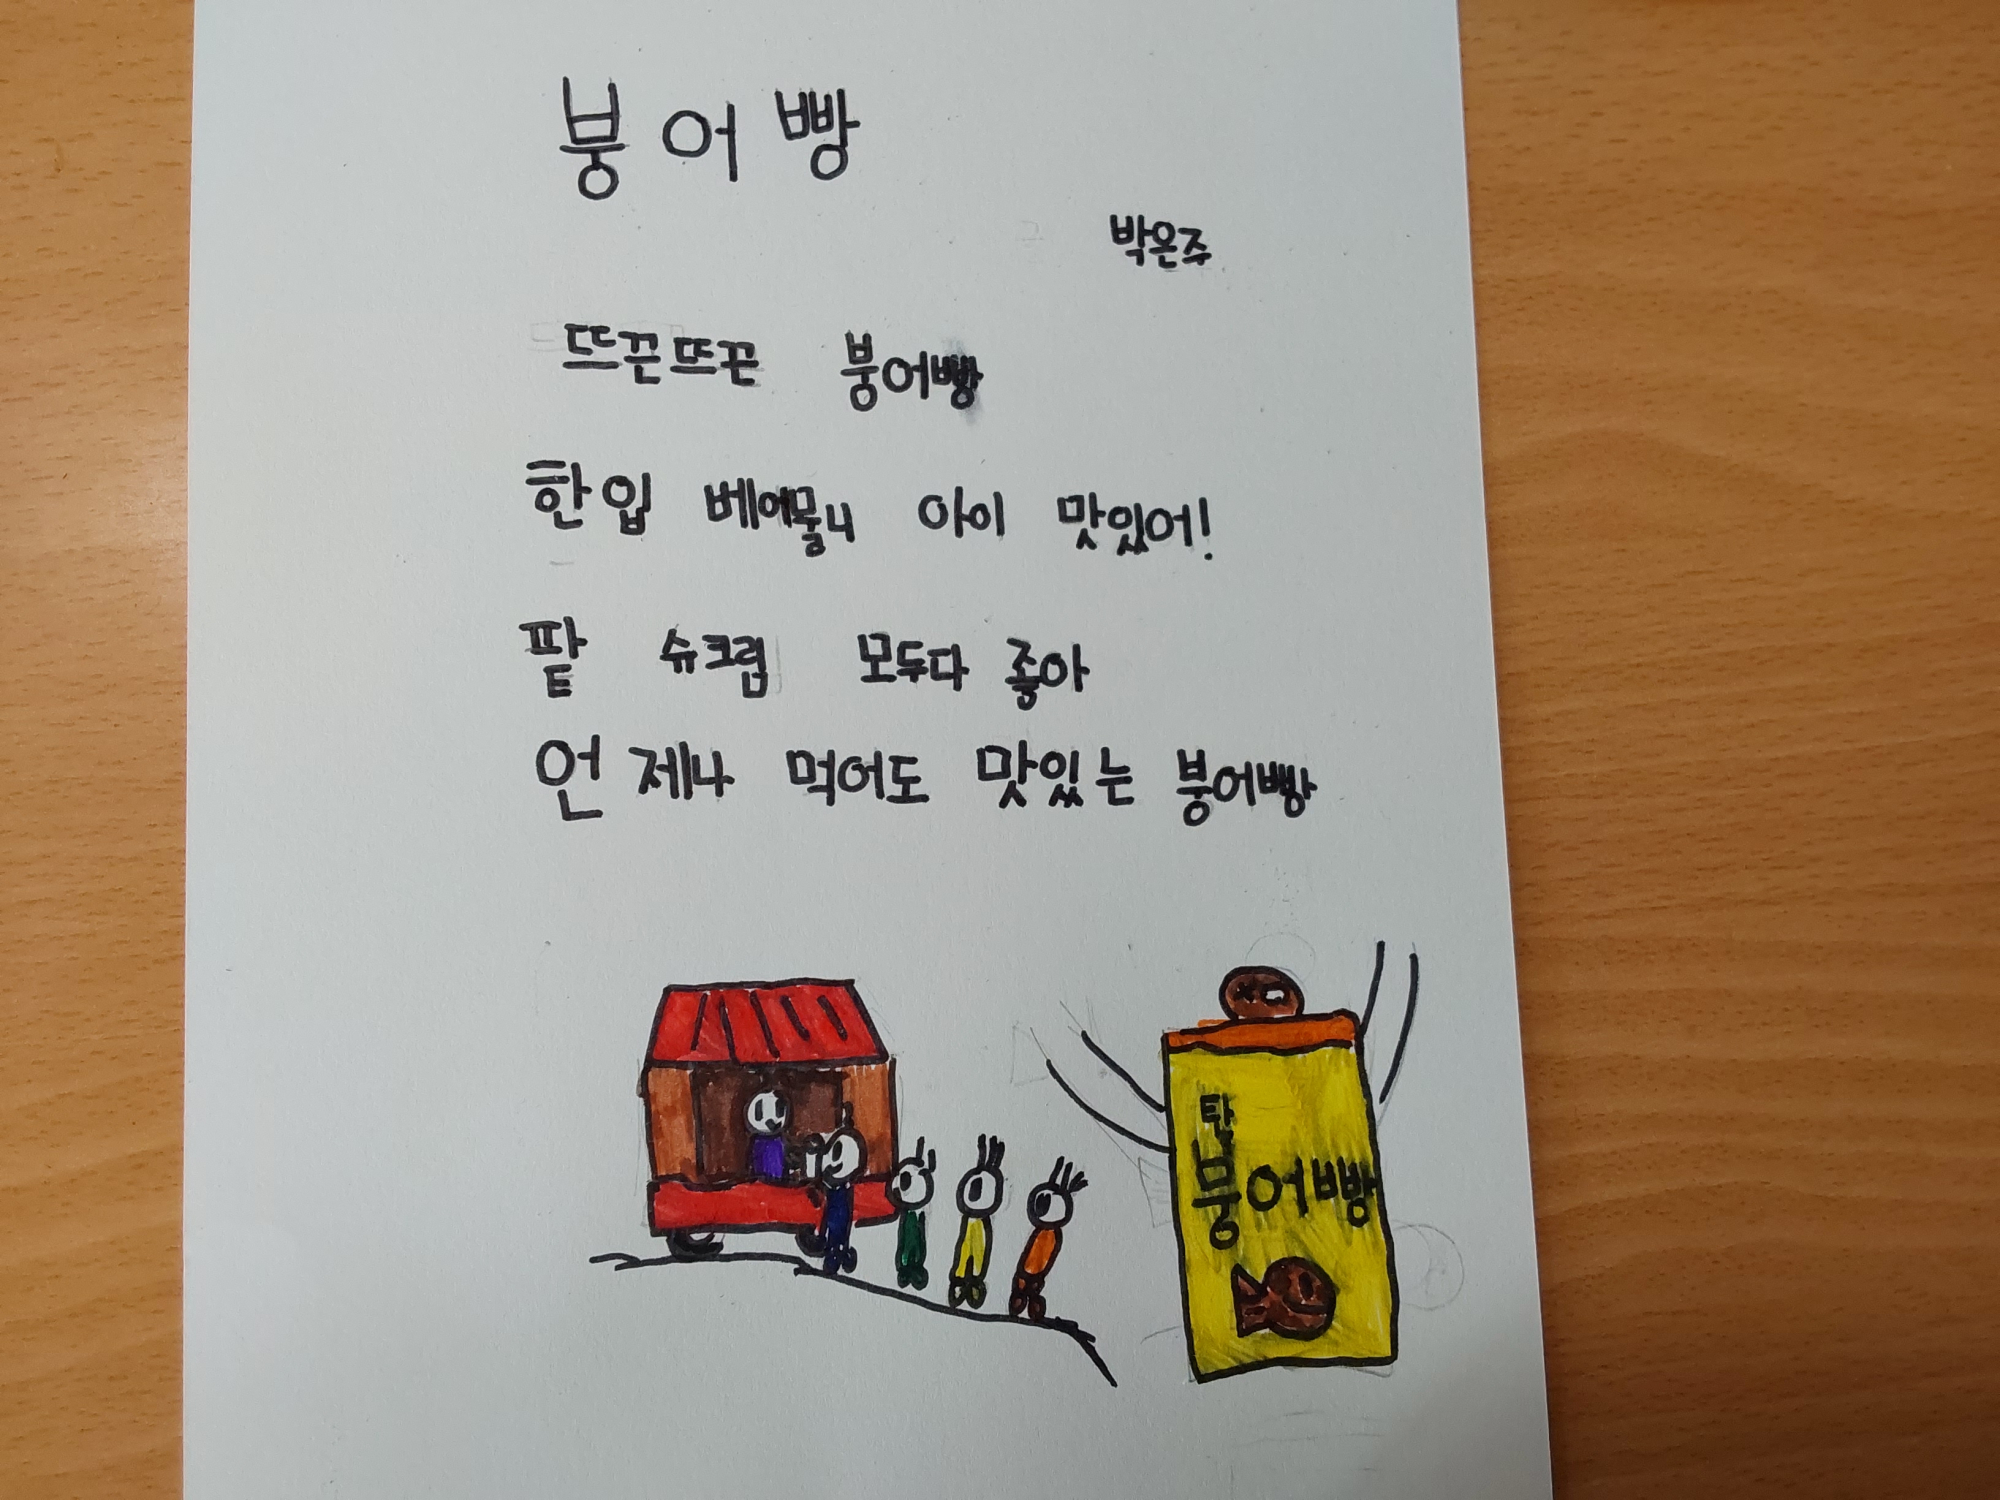 붕어빵
박온주
뜨끈뜨끈 붕어빵
한입 베어물니 아이 맛있어!
팥 슈크림 모두다 좋아
언제나 먹어도 맛있는 붕어빵
탄
붕어빵